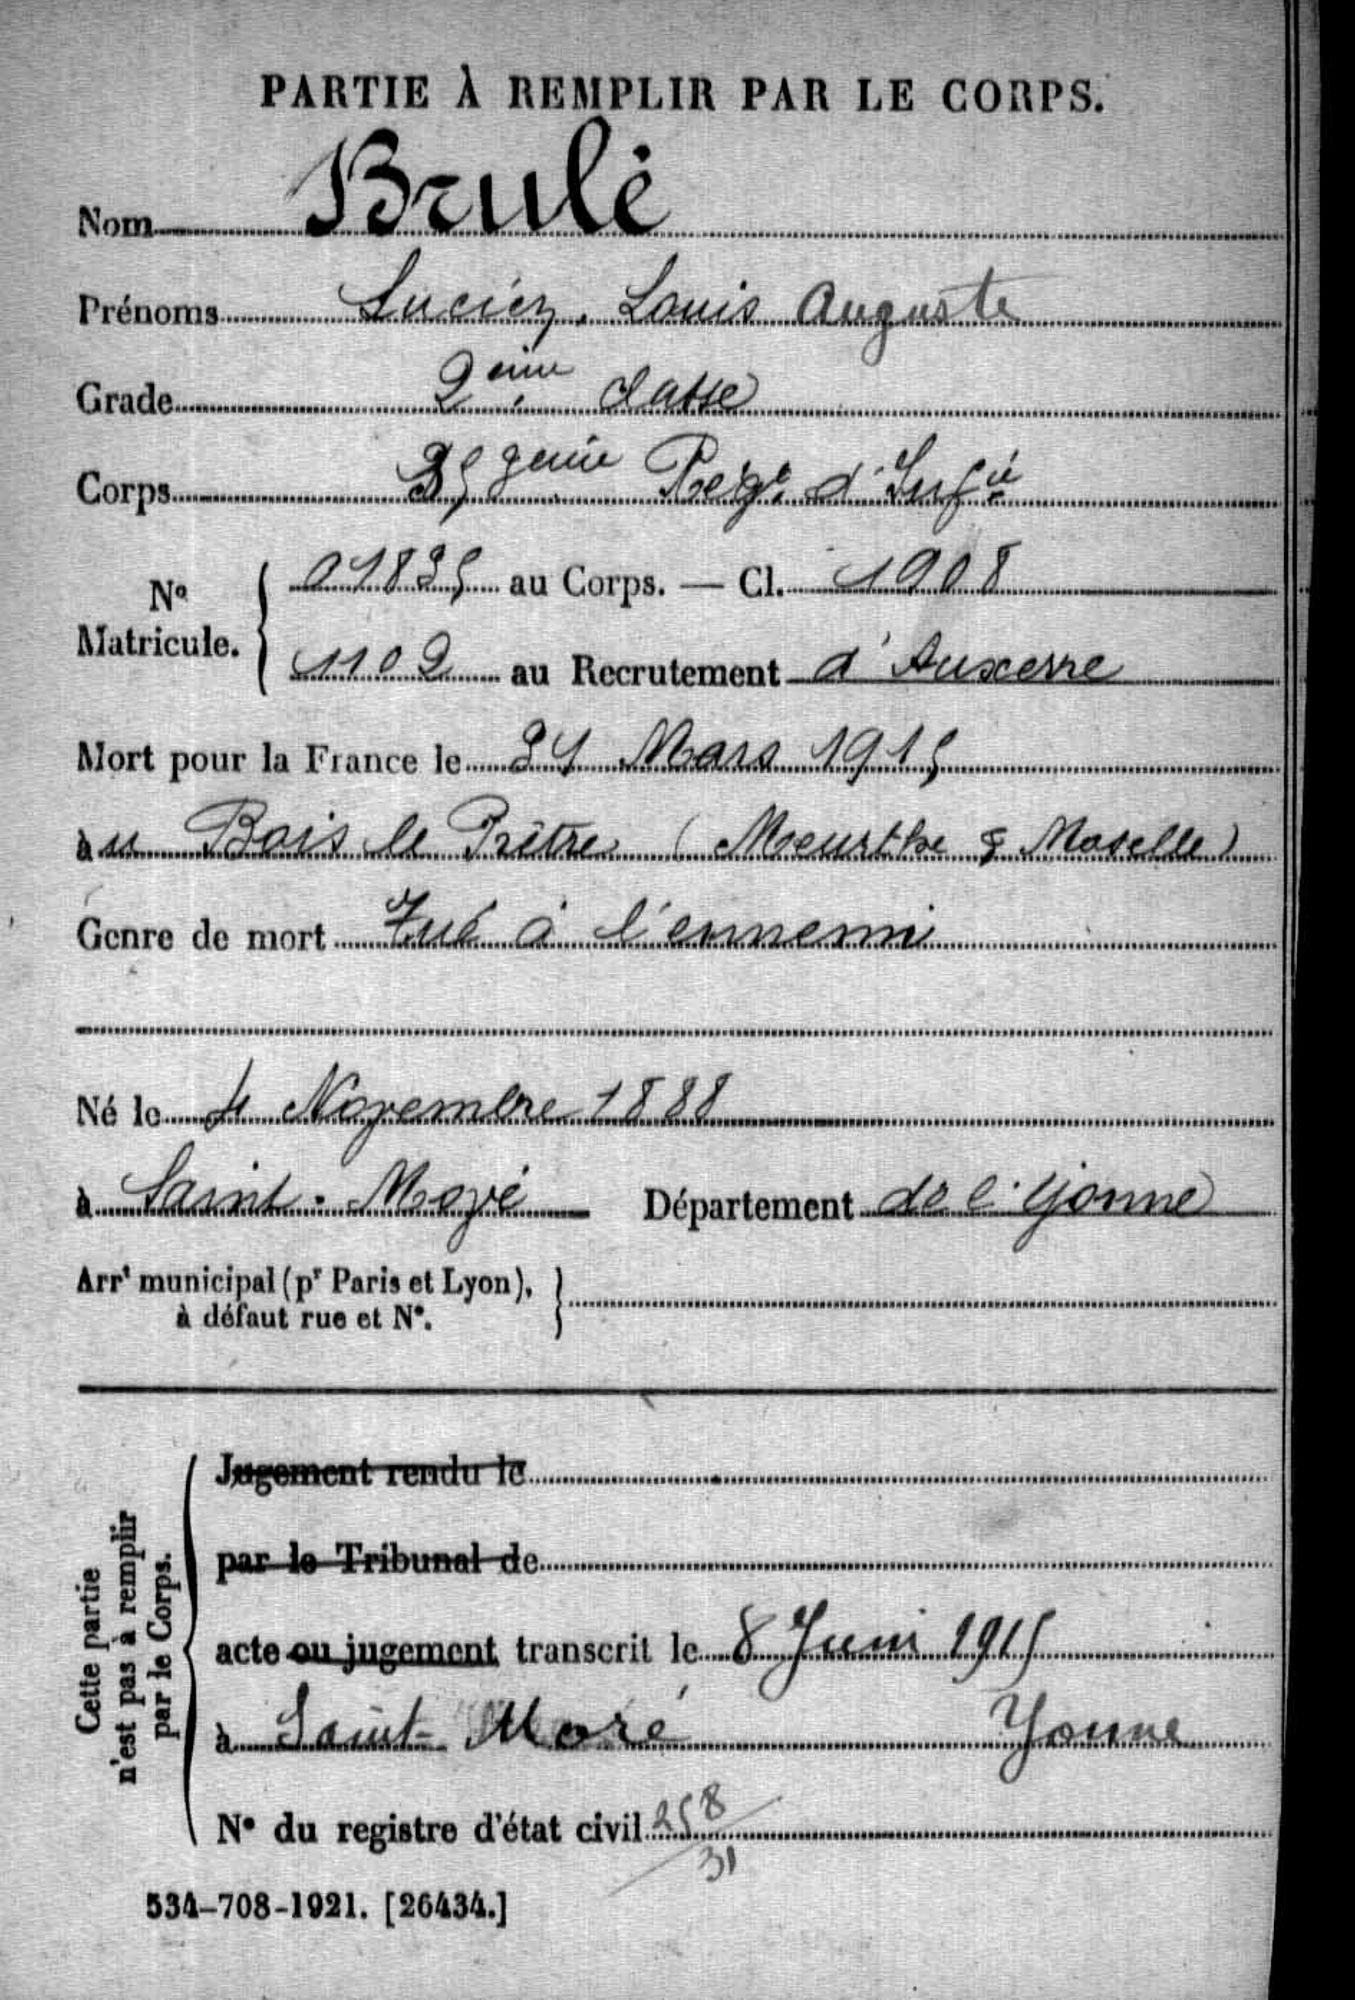 PARTIE À REMPLIR PAR LE CORPS.
Nom Brulé
Prénoms Lucien, Louis Auguste
Grade 2ème classe
Corps Régt d'Infie
No Matricule. 01835 au Corps. — Cl. 1908
1102 au Recrutement d'Auxerre
Mort pour la France le 31 Mars 1915
à u Bois le Prêtre (Meurthe & Moselle)
Genre de mort Tué à l'ennemi
Né le 4 Novembre 1888
à Saint-Moré Département de l'Yonne
Arrt municipal (pr Paris et Lyon),
à défaut rue et No.
Cette partie
n'est pas à remplir
par le Corps.
Jugement rendu le
par le Tribunal de
acte ou jugement transcrit le 8 Juin 1915
à Saint-Moré Yonne
No du registre d'état civil 258/31
534-708-1921. [26434.]